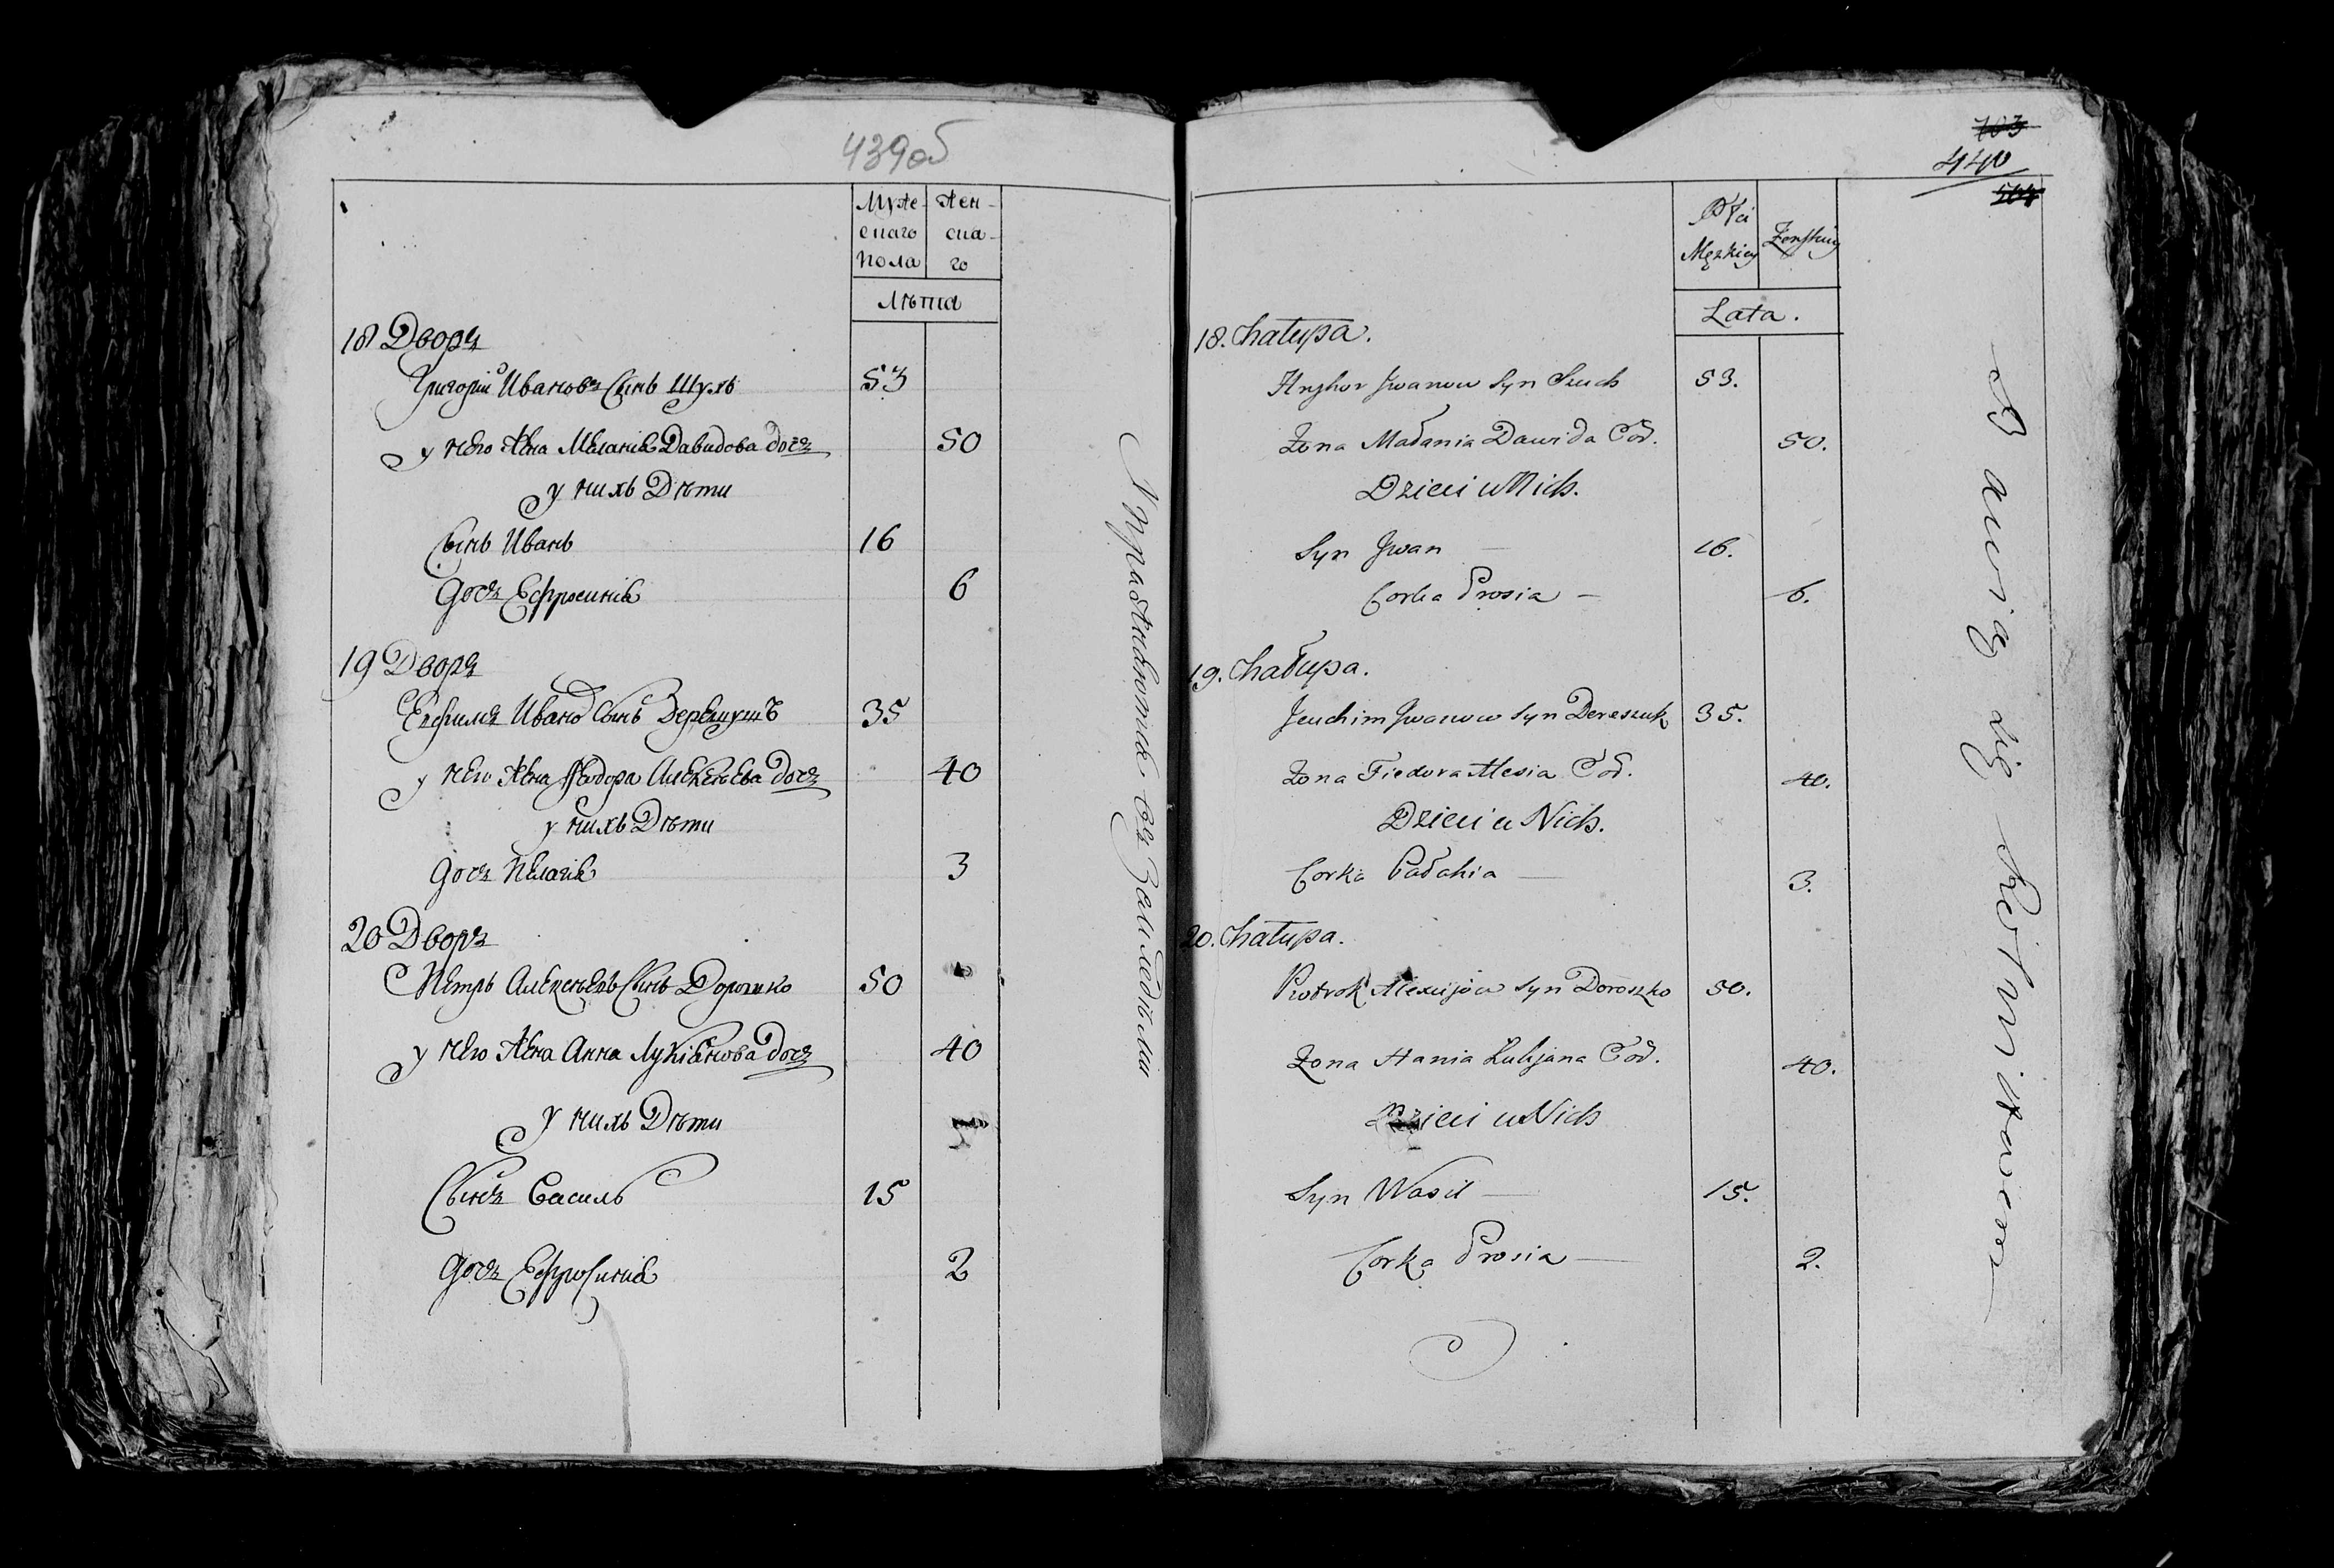 439об
Муже- Жен-
скаго ска-
пола го
Лѣта
18 Дворъ
Григорій Ивановъ Сынъ Шухъ 53
у него Жена Меланія Давидова дочь 50
у нихъ Дѣти
Сынъ Иванъ 16
Дочь Ефросинія 6
19 Дворъ
Евфимъ Иванов Сынъ 35
у него Жена Федора Алексеева дочь 40
у нихъ Дѣти
Дочь Пелагія 3
20 Дворъ
Петръ Алексеевъ Сынъ Дорошко 50
у него Жена Анна Лукіянова дочь 40
у нихъ Дѣти
Сынъ Василь 15
Дочь Ефросинія 2
703
440
504
Płci
Męzkiey Żenskiey
Lata.
18. Chałupa.
Hryhor Jwanow Syn Szuch 53.
Żona Małania Dawida Cór. 50.
Dzieci u Nich.
Syn Jwan — 16.
Corka Prosia — 6.
19. Chałupa.
Jeuchim Jwanow Syn Dereszuk 35.
Żona Fiedora Alexia Cór. 40.
Dzieci u Nich.
Corka Pałahia — 3.
20. Chałupa.
Piotrok Alexijow Syn Doroszko 50.
Żona Hania Łukjana Cór. 40.
Dzieci u Nich
Syn Wasil — 15.
Corka Prosia — 2.